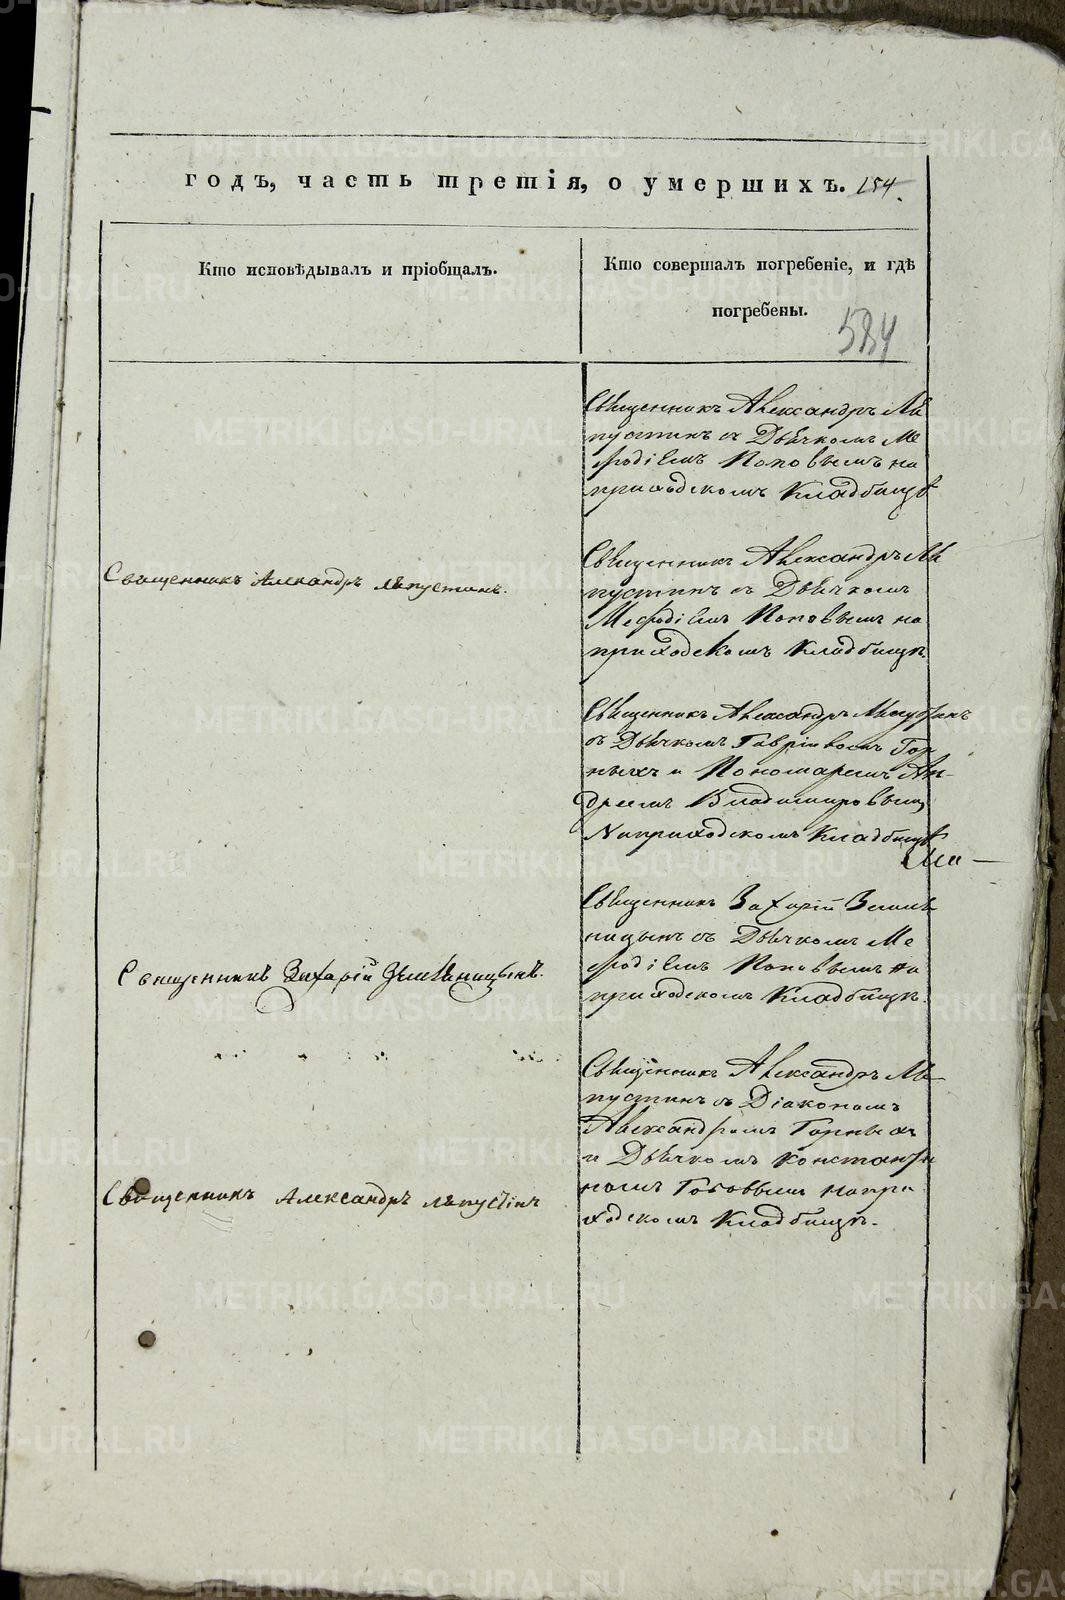 годъ, часть третія, о умершихъ. 154.
Кто исповѣдывалъ и пріобщалъ.
Кто совершалъ погребеніе, и гдѣ
погребены.
584
Священникъ Александръ Ля
пустинъ съ Дьячкомъ Ме
фодіемъ Поповымъ на
приходскомъ Кладбищѣ
Священникъ Александръ Ляпустинъ.
Священникъ Александръ Ля
пустинъ съ Дьячкомъ
Мефодіемъ Поповымъ на
приходскомъ Кладбищѣ.
Священникъ Александръ
съ Дьячкомъ Гавріиломъ Гор
ныхъ и Пономаремъ Ан-
дреемъ Владимировымъ
На приходскомъ Кладбищѣ
Священникъ Захарій
съ Дьячкомъ Ме
фодіемъ Поповымъ на
приходскомъ Кладбищѣ.
Священникъ Захарій
Священникъ Александръ Ля
пустинъ съ Діакономъ
Александромъ Горныхъ
и Дьячкомъ Константи
номъ на при
ходскомъ Кладбищѣ.
Священникъ Александръ Ляпустинъ
METRIKI.GASO-URAL.RU